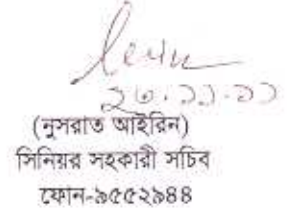 ২৩.১১.১১
(নুসরাত আইরিন)
সিনিয়র সহকারী সচিব
ফোন-৯৫৫২৯৪৪